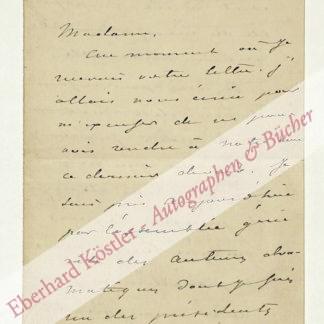 Madame,
Au moment où je
recevais votre lettre. j'
allais vous écrire pour
m'excuser de ne pou-
voir rendre à
ce dernier Je
suis pris
par l'assemblée géné
des auteurs dra-
matiques dont je suis
un des présidents
Eberhard Köstler - Autographen & Bücher